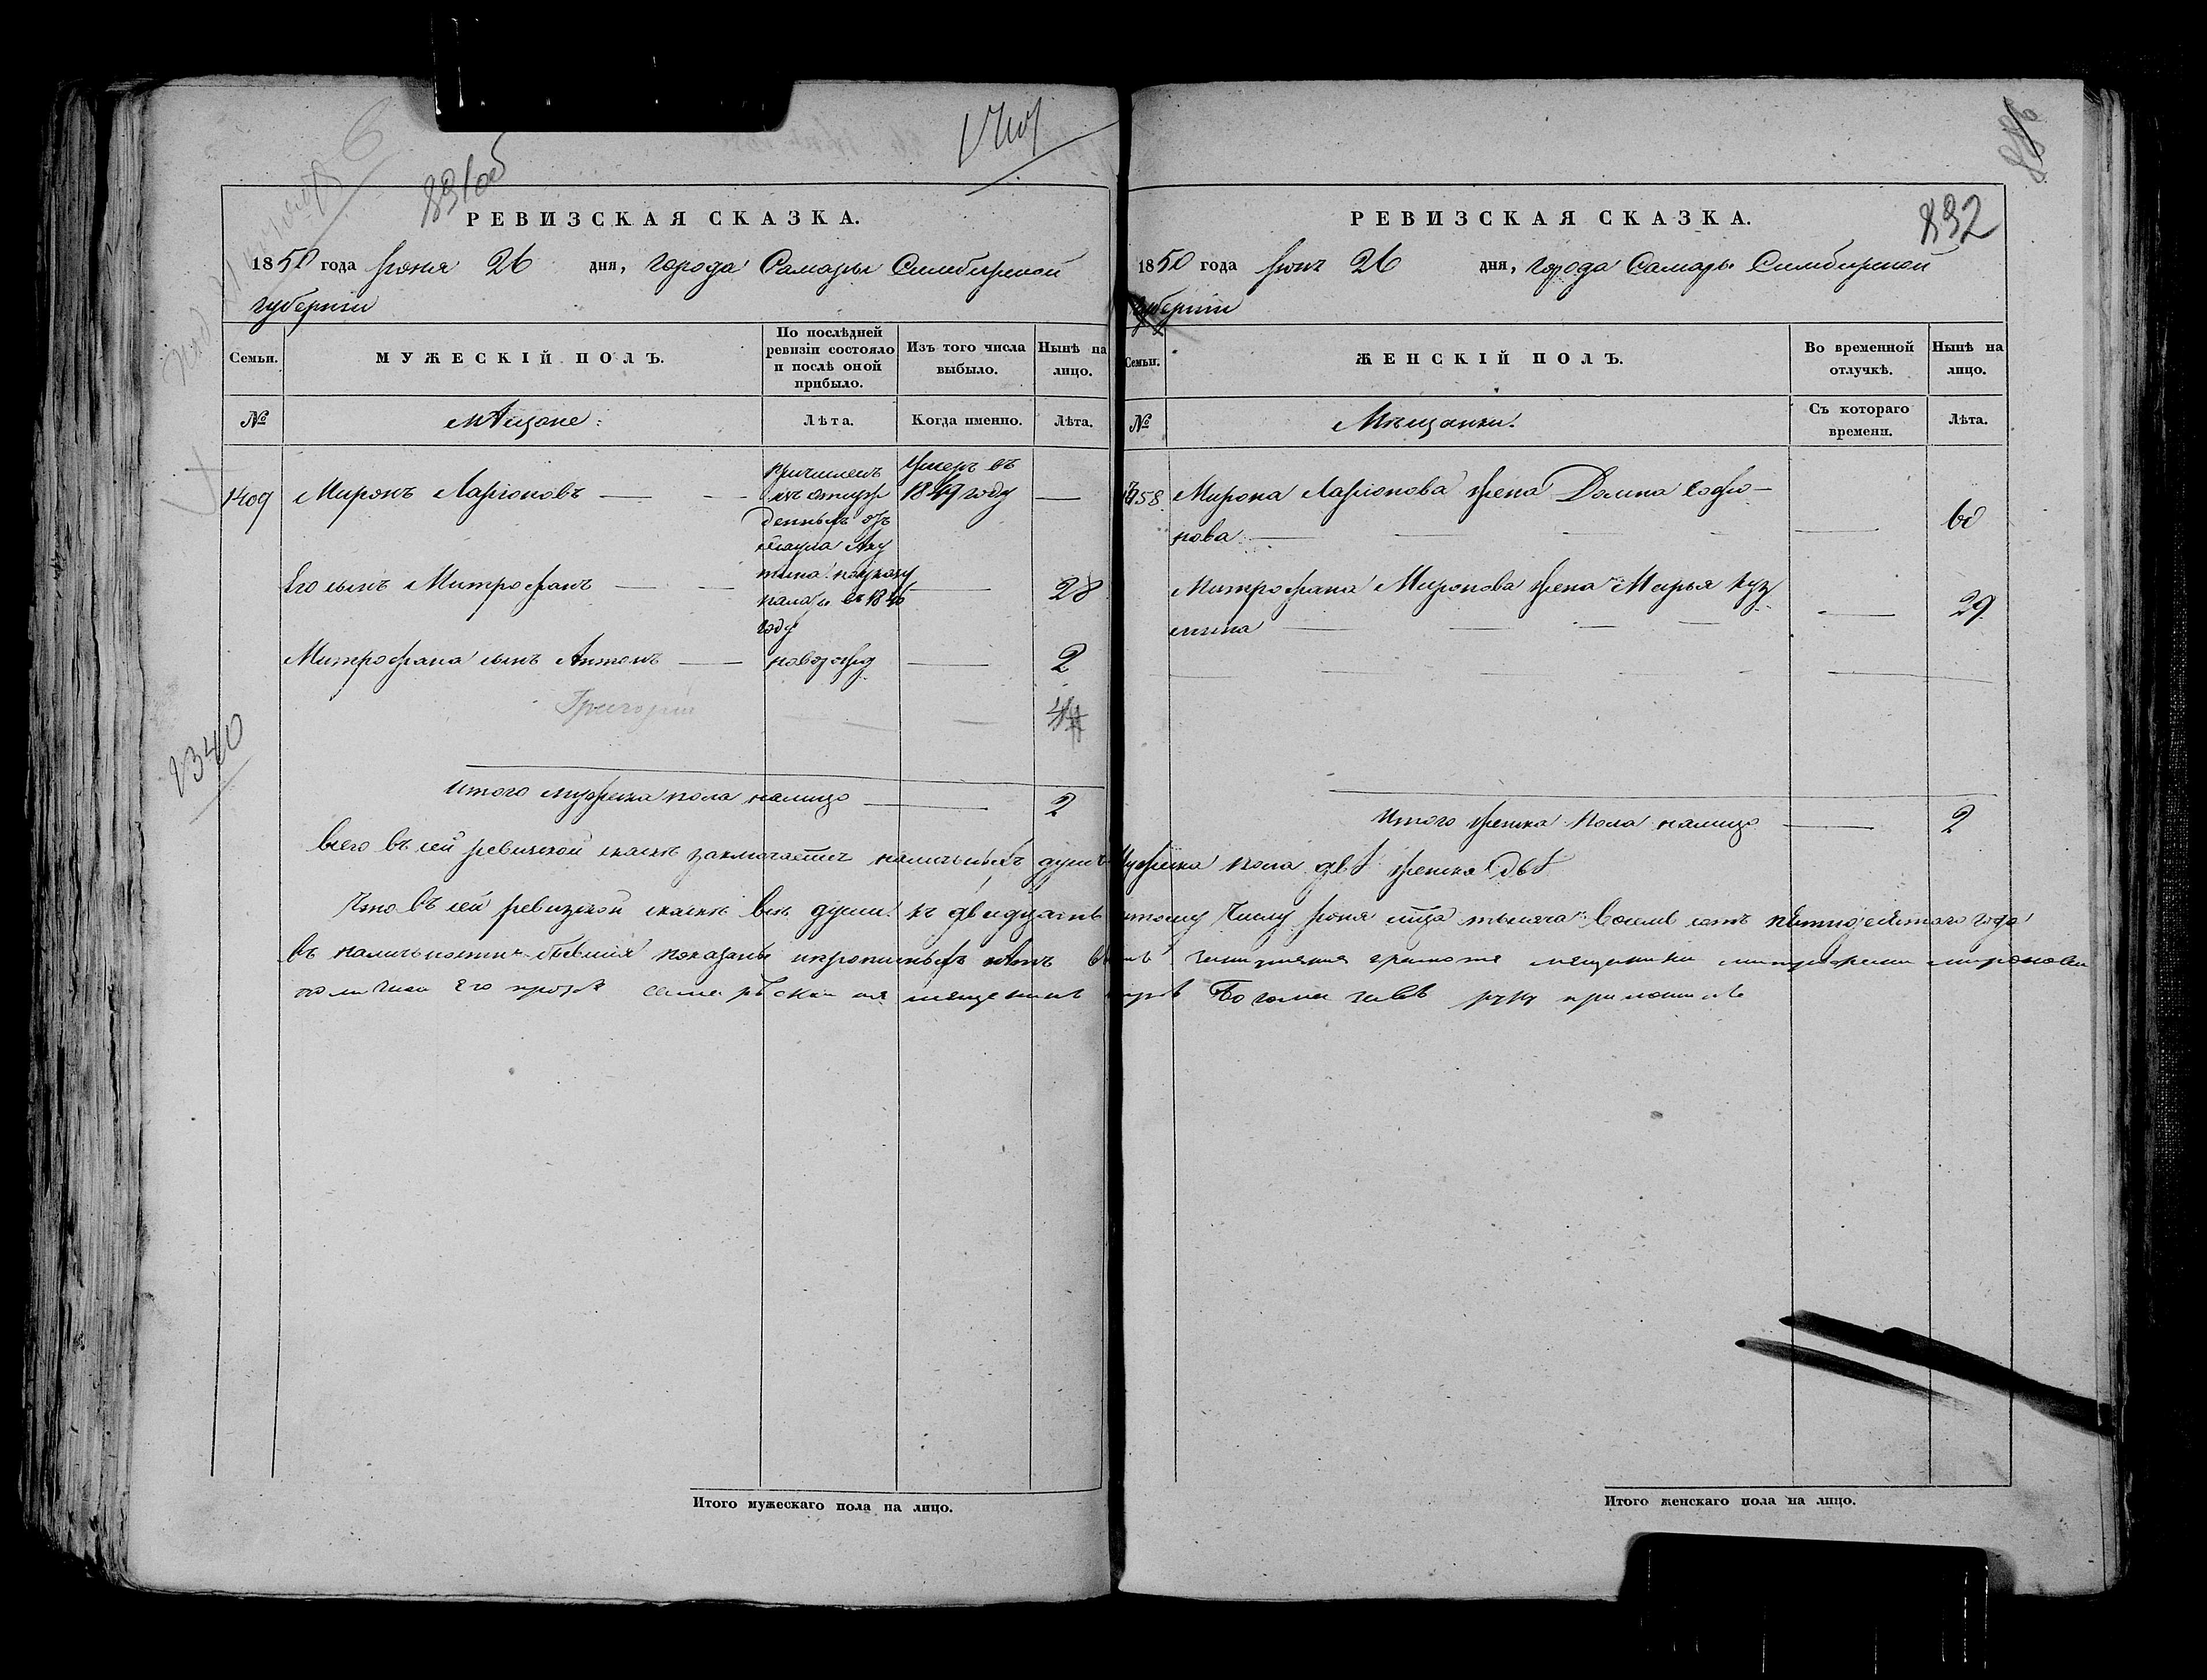 891об
РЕВИЗСКАЯ СКАЗКА.
1850 года Іюня 26 дня, города Самары Симбирской
губерніи
Семьи.
МУЖЕСКІЙ ПОЛЪ.
По послѣдней
ревизіи состояло
и послѣ оной
прибыло.
Изъ того числа
выбыло.
Нынѣ на
лицо.
№
мѣщане:
Лѣта.
Когда именно.
Лѣта.
1409
Миронъ Ларіоновъ
причисленъ
изъ
Умеръ въ
1849 году
Его сынъ Митрофанъ
28
палаты въ 1846
году
Митрофана сынъ Антонъ
новорожд
2
Григорій
1340
Итого мужеска пола налицо
2
РЕВИЗСКАЯ СКАЗКА.
892
1850 года Іюня 26 дня, города Самары Симбирской
губерніи
Семьи.
ЖЕНСКІЙ ПОЛЪ.
Во временной
отлучкѣ.
Нынѣ на
лицо.
№
Мѣщанки:
Съ котораго
времени.
Лѣта.
Мирона Ларіонова жена Домна Софро-
нова
60
Митрофана Миронова жена Марья Куз
мина
29
Итого женска пола налицо
2
всего въ сей ревизской сказкѣ заключается наличныхъ душъ мужеска пола двѣ женска двѣ
Что въ сей ревизской сказкѣ всѣ души къ двадцать шестому числу Іюня мѣсяца тысяча восемь сотъ пятидесятаго года
въ наличности бывшія показаны и прописныхъ нѣтъ грамоте мещанина митрофана миронова
его прозбѣ самарской мещанинъ руку приложилъ
Итого мужескаго пола на лицо.
Итого женскаго пола на лицо.